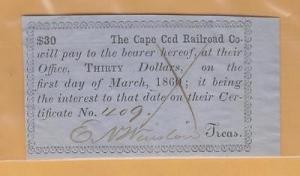 $30 The Cape Cod Railroad Co.
will pay to the bearer hereof, at their
Office, THIRTY Dollars, on the
first day of March, 1860; it being
the interest to that date on their Cer-
tificate No. 409.
E. N. Winslow Treas.